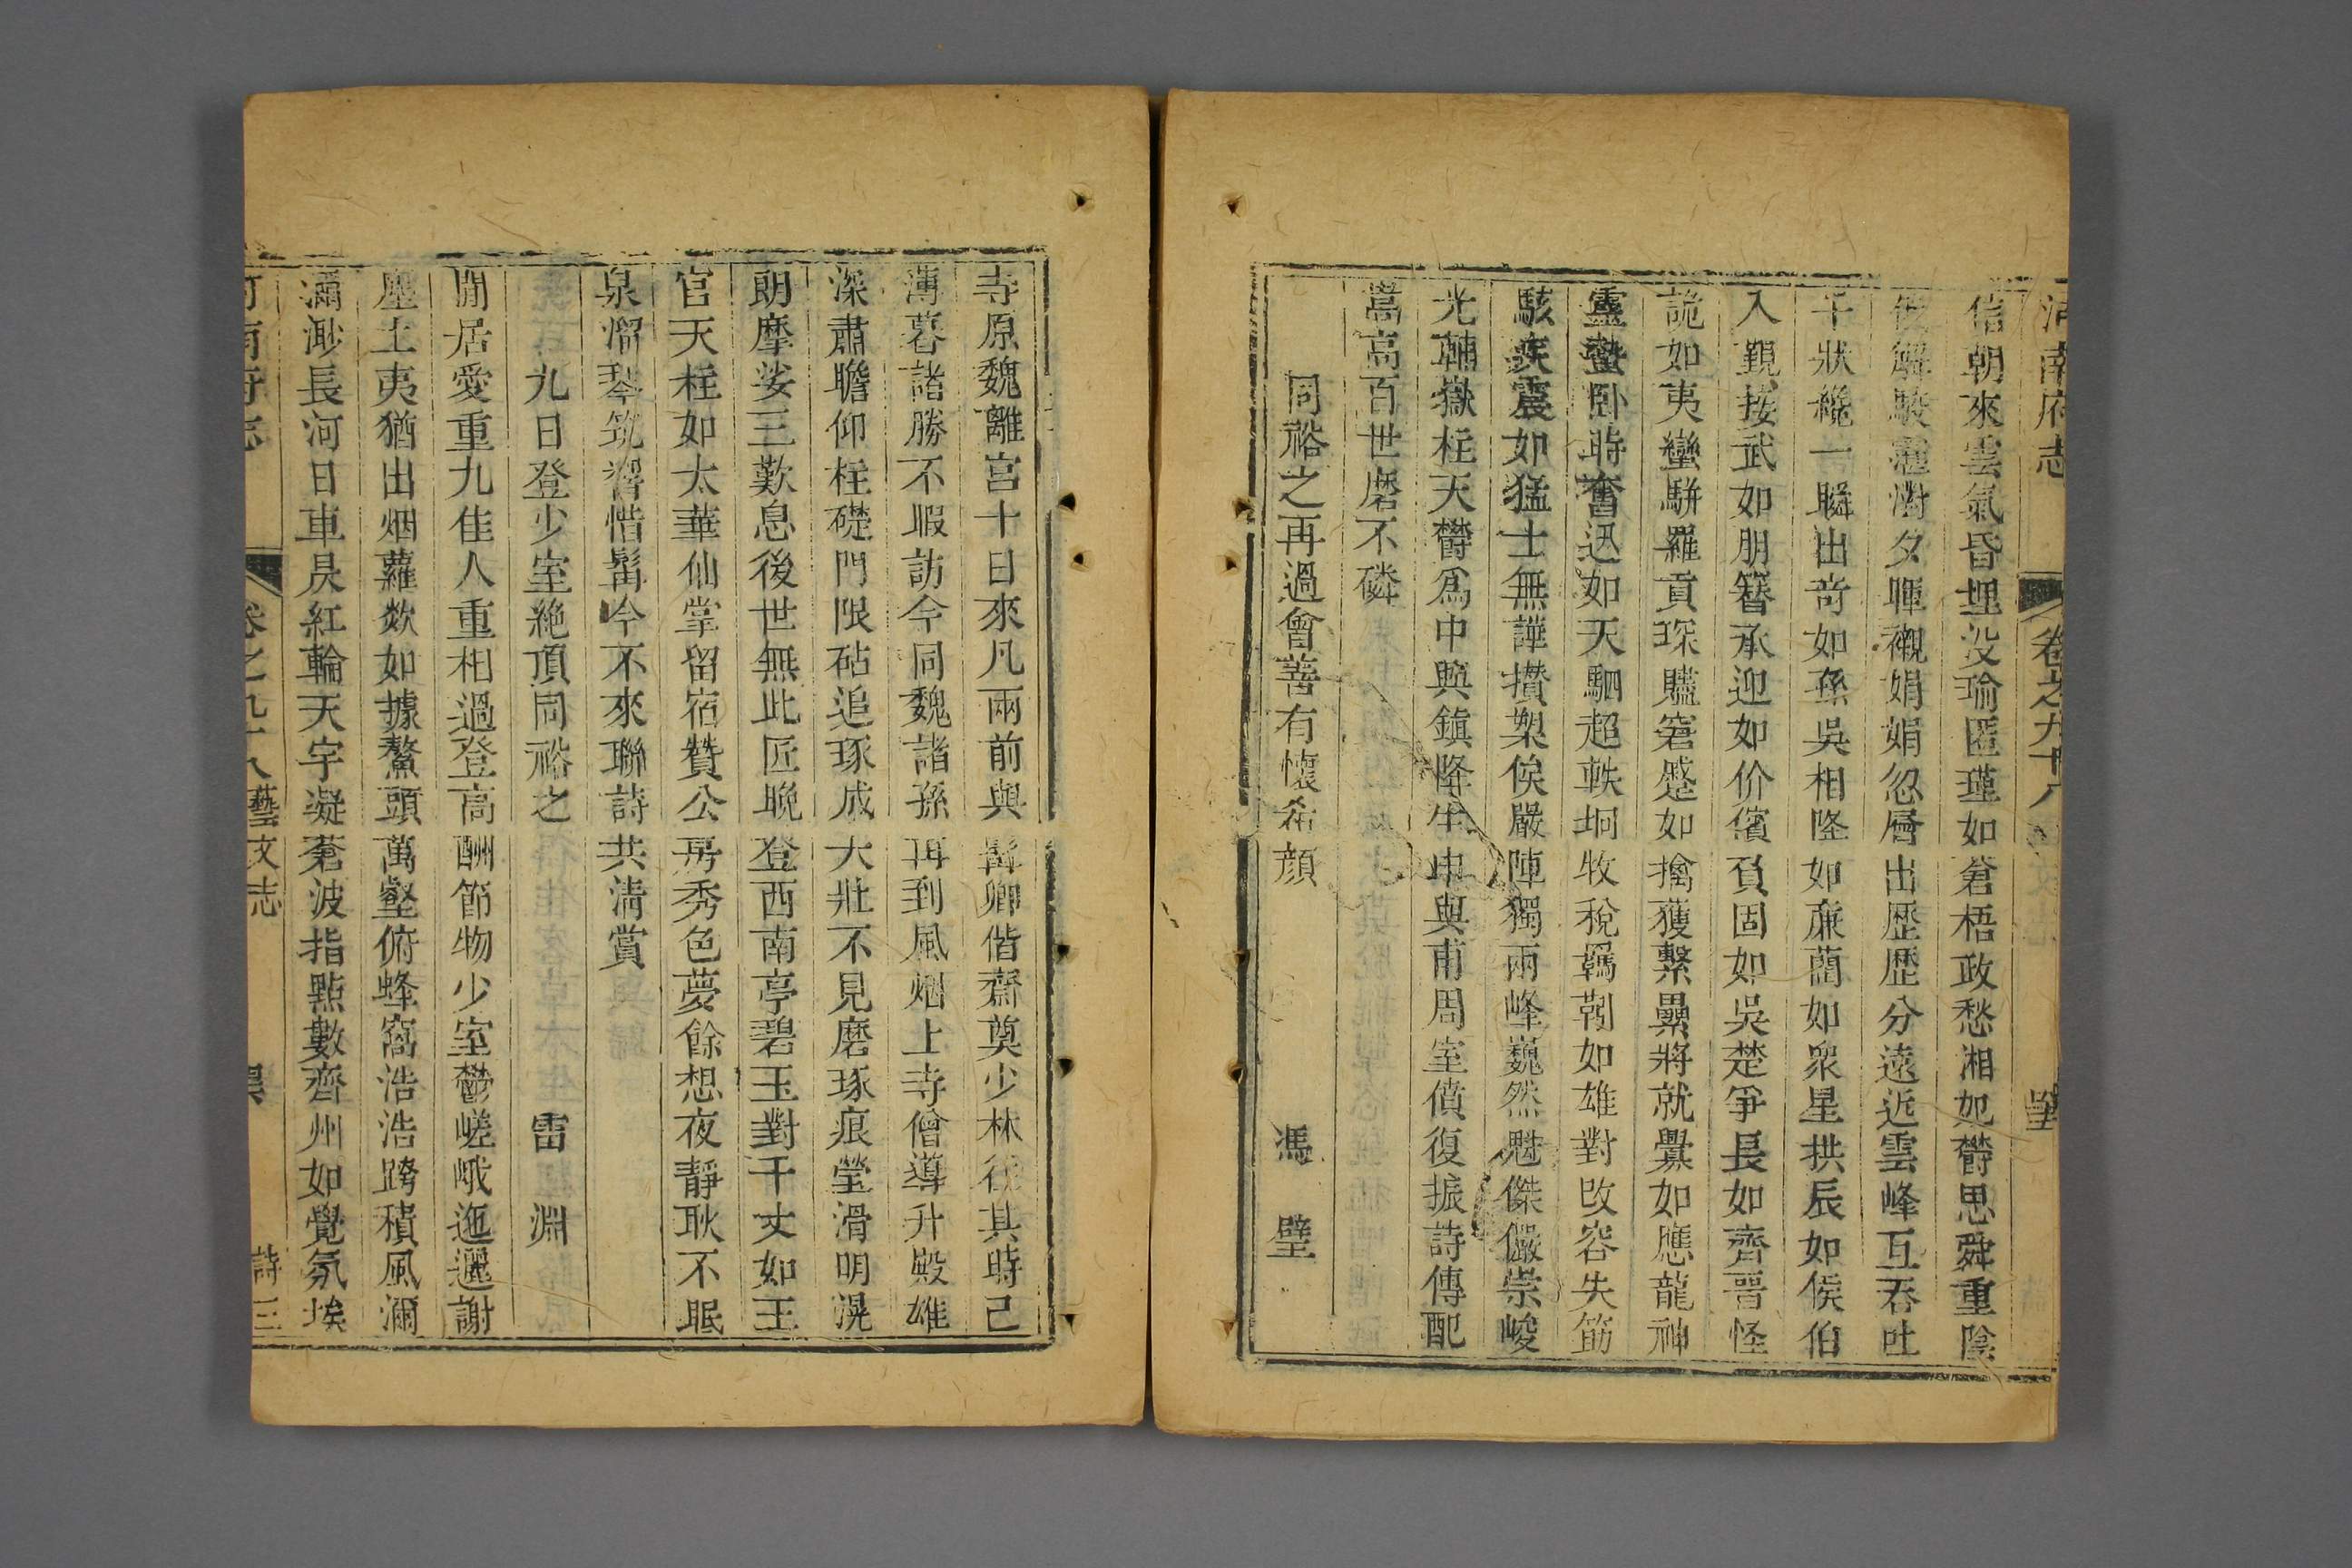 河南府志 卷之九十八
信朝來雲氣昏埋没瑜匿瑾如蒼梧政愁湘如欝思舜重陰
解駮霪澍夕暉襯娟娟忽層出歷歷分遠近雲峰互吞吐
千狀纔一瞬出奇如孫吳相隆如亷藺如衆星拱辰如侯伯
入覲按武如朋簪承迎如价儐負固如吳楚爭長如齊晉怪
詭如夷蠻駢羅貢琛贐窘蹙如擒獲繫纍將就釁如應龍神
靈蟄卧時奮迅如天駟超軼坰牧稅羈靷如雄對改容失筯
駭疾震如猛士無譁攅槊俟嚴陣獨兩峰巍然魁傑儼崇峻
光輔嶽柱天欝爲中興鎮降生申與甫周室僨復振詩傳配
嵩高百世磨不磷
同裕之再過會善有懷希顏 馮璧
寺原魏離宫十日來凡兩前與髯卿偕齋奠少林往其時已
薄暮諸勝不暇訪今同魏諸孫再到風烟上寺僧導升殿雄
深肅瞻仰柱礎門限砧追琢成大壯不見磨琢痕瑩滑明滉
朗摩挲三歎息後世無此匠晚登西南亭碧玉對千丈如王
官天柱如太華仙掌留宿贊公房秀色夢餘想夜靜耿不眠
泉溜琴筑響惜髯今不來聯詩共淸賞
九日登少室絶頂同裕之 雷淵
閒居愛重九佳人重相過登高酬節物少室鬱嵯峨迤邐謝
塵土夷猶出烟蘿欻如據鰲頭萬壑俯蜂窩浩浩跨積風瀰
瀰渺長河日車昃紅輪天宇凝蒼波指點數齊州如覺氛埃
河南府志 卷之九十八藝文志 詩三